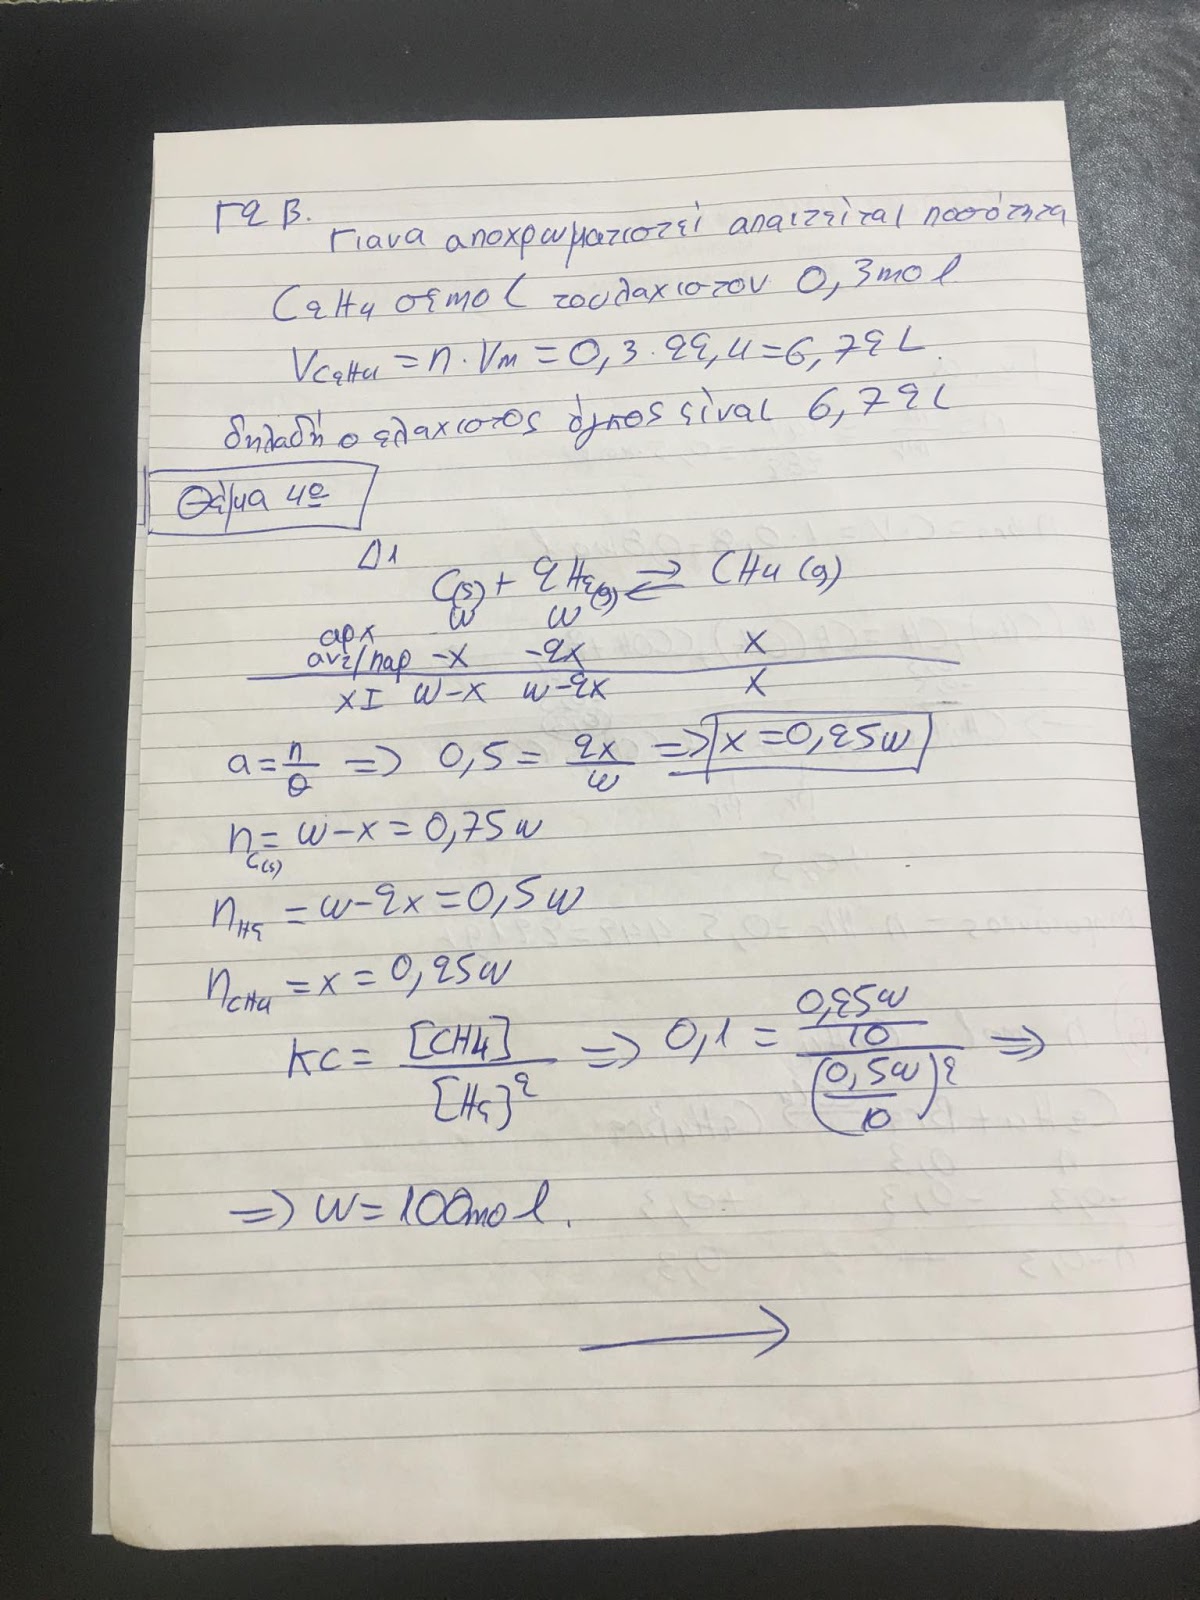 Γ2 Β.
Για να αποχρωματιστεί απαιτείται ποσότητα
C2H4 σε mol τουλάχιστον 0,3 mol
VC2H4 = n · Vm = 0,3 · 22,4 = 6,72 L
δηλαδή ο ελάχιστος όγκος είναι 6,72 L
Θέμα 4ο
Δ1
C(s) + 2H2(g) ⇌ CH4 (g)
αρχ ω ω
αντ/παρ -x -2x x
ΧΙ ω-x ω-2x x
a = n/θ => 0,5 = 2x/ω => x = 0,25ω
nC(s) = ω-x = 0,75ω
nH2 = ω-2x = 0,5ω
nCH4 = x = 0,25ω
Kc = [CH4]/[H2]² => 0,1 = (0,25ω/10)/(0,5ω/10)² =>
=> ω = 100mol.